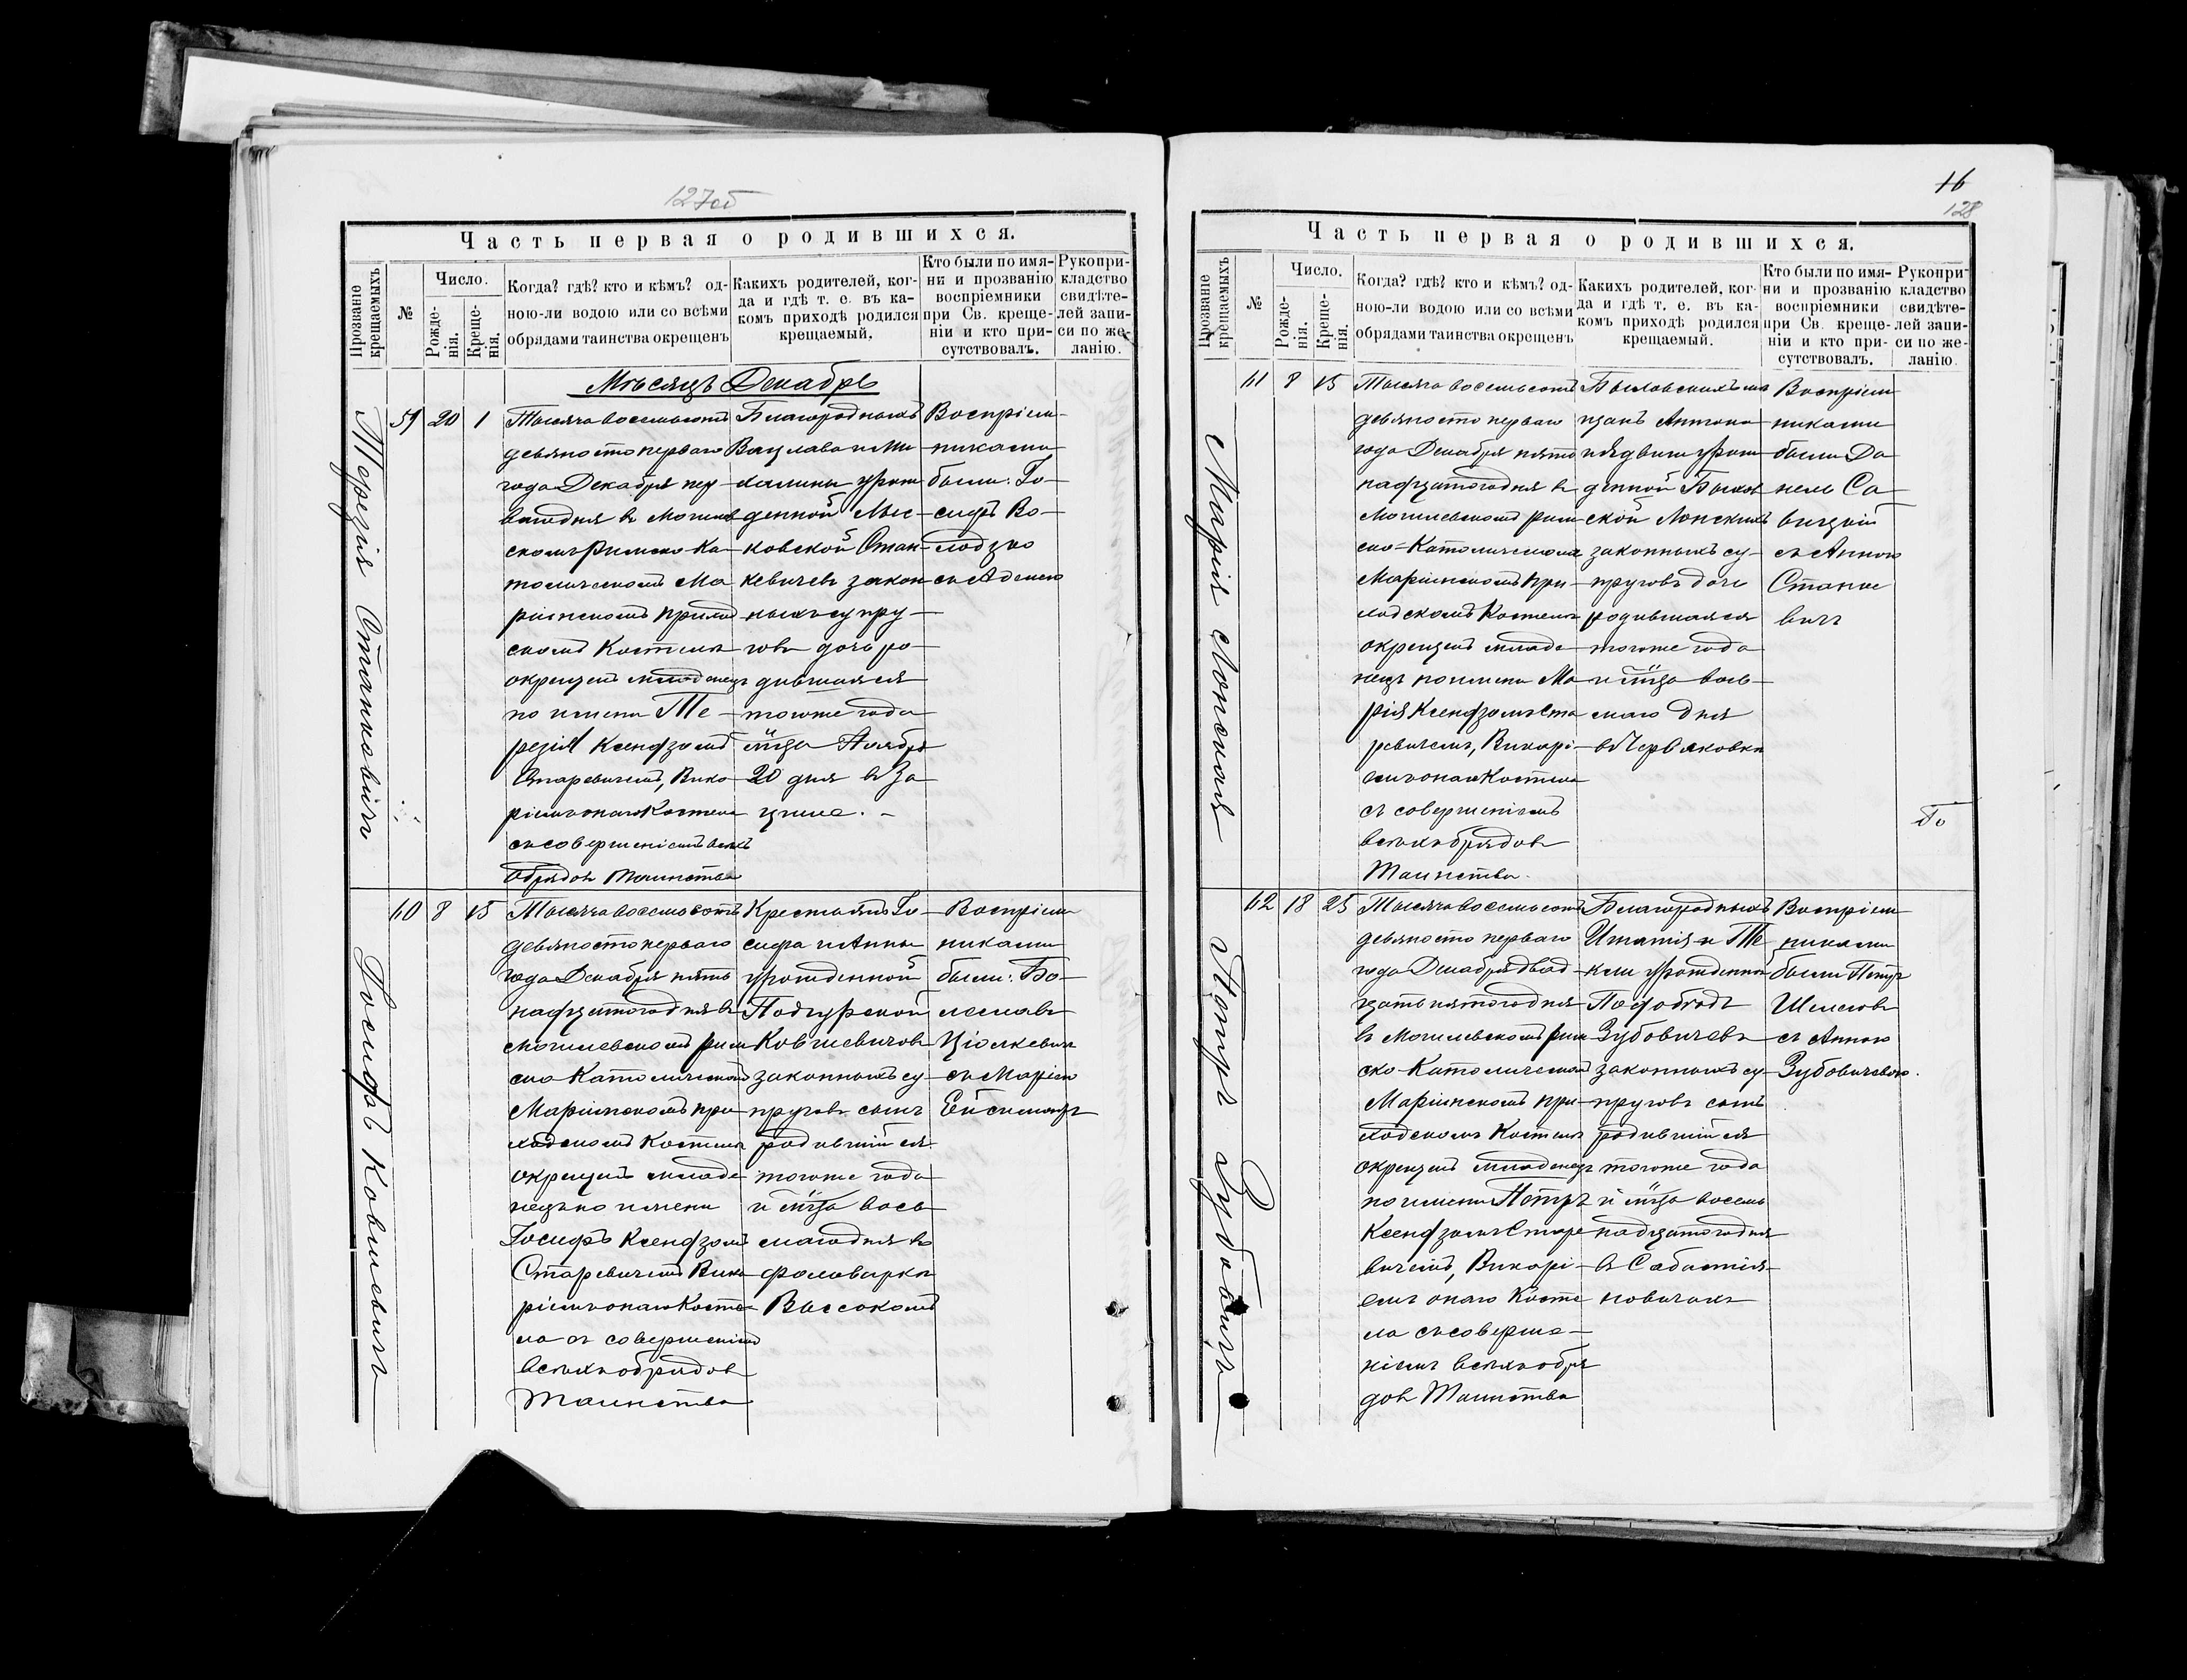 127об
Часть первая о родившихся.
Прозваніе крещаемыхъ
№
Число.
Рожде-
нія.
Креще-
нія.
Когда? гдѣ? кто и кѣмъ? од-
ною-ли водою или со всѣми
обрядами таинства окрещенъ
Какихъ родителей, ког-
да и гдѣ т. е. въ ка-
комъ приходѣ родился
крещаемый.
Кто были по имя-
ни и прозванію
воспріемники
при Св. креще-
ніи и кто при-
сутствовалъ.
Рукопри-
кладство
свидѣте-
лей запи-
си по же-
ланію.
Мѣсяцъ Декабрь
Терезія Станкевичъ
59 20 1
Тысяча восемьсотъ
девяносто перваго
года Декабря пер-
ваго дня въ Могилев
скомъ Римско Ка-
толическомъ Ма
ріинскомъ приход
скомъ Костелѣ
окрещенъ младенецъ
по имени Те-
резія Ксендзомъ
Старевичемъ, Вика
ріемъ онаго Костела
съ совершеніемъ всѣхъ
обрядовъ Таинства
Благородныхъ
Вацлава и Ми
халины урож
денной
ковской Стан-
кевичевъ закон
ныхъ супру-
говъ дочь ро-
дившаяся
тогоже года
м-ца Ноября
20 дня въ За
Воспріем-
никами
были: Іо-
сифъ Во-
лодзко
съ Аделею
Іосифъ Ковшевичъ
60 8 15
Тысяча восемьсотъ
девяносто перваго
года Декабря пять
надцатого дня въ
Могилевскомъ рим
ско Католическомъ
Маріинскомъ при
ходскомъ Костелѣ
окрещенъ младе
нецъ по имени
Іосифъ Ксендзомъ
Старевичемъ Вика
ріемъ онаго Косте
ла съ совершеніемъ
всѣхъ обрядовъ
Таинства
Крестьянъ Іо-
сифа и Анны
урожденной
Подгурской
Ковшевичовъ
законныхъ су-
пруговъ сынъ
родившійся
тогоже года
и м-ца вось
маго дня въ
фольваркѣ
Высокомъ
Воспріем
никами
были: Бо-
леславъ
Ціолкевичъ
съ Маріею
Ейсимонтъ
16
128
Часть первая о родившихся.
Прозваніе крещаемыхъ
№
Число.
Рожде-
нія.
Креще-
нія.
Когда? гдѣ? кто и кѣмъ? од-
ною-ли водою или со всѣми
обрядами таинства окрещенъ
Какихъ родителей, ког-
да и гдѣ т. е. въ ка-
комъ приходѣ родился
крещаемый.
Кто были по имя-
ни и прозванію
воспріемники
при Св. креще-
ніи и кто при-
сутствовалъ.
Рукопри-
кладство
свидѣте-
лей запи-
си по же-
ланію.
Марія Лонская
61 8 15
Тысяча восемьсотъ
девяносто перваго
года Декабря пято
надцатого дня въ
Могилевскомъ рим
ско-Католическомъ
Маріинскомъ при-
ходскомъ Костелѣ
окрещенъ младе
нецъ по имени Ма
рія Ксендзомъ Ста
ревичемъ, Викарі-
емъ онаго Костела
съ совершеніемъ
всѣхъ обрядовъ
Таинства.
Быховскихъ мѣ
щанъ Антона
и Ядвиги урож
денной Быхов
ской Лонскихъ
законныхъ су-
пруговъ дочь
родившаяся
тогоже года
и м-ца вось-
маго дня
въ Червяковкѣ
Воспріем
никами
были Да
нель Са
вицкій
съ Анною
Станке
вичъ
Петръ Зубовичъ
62 18 25
Тысяча восемьсотъ
девяносто перваго
года Декабря двад-
цать пятого дня
въ Могилевскомъ рим
ско-Католическомъ
Маріинскомъ при-
ходскомъ Костелѣ
окрещенъ младенецъ
по имени Петръ
Ксендзомъ Старе
вичемъ, Викарі-
емъ онаго Косте
ла съ соверше-
ніемъ всѣхъ обря
довъ Таинства
Благородныхъ
Игнатія и Те
кли урожденной
Зубовичевъ
законныхъ су-
пруговъ сынъ
родившійся
тогоже года
и м-ца восемь
надцатого дня
въ Сабастія-
новичахъ
Воспріем
никами
были Петръ
съ Анною
Зубовичевою.